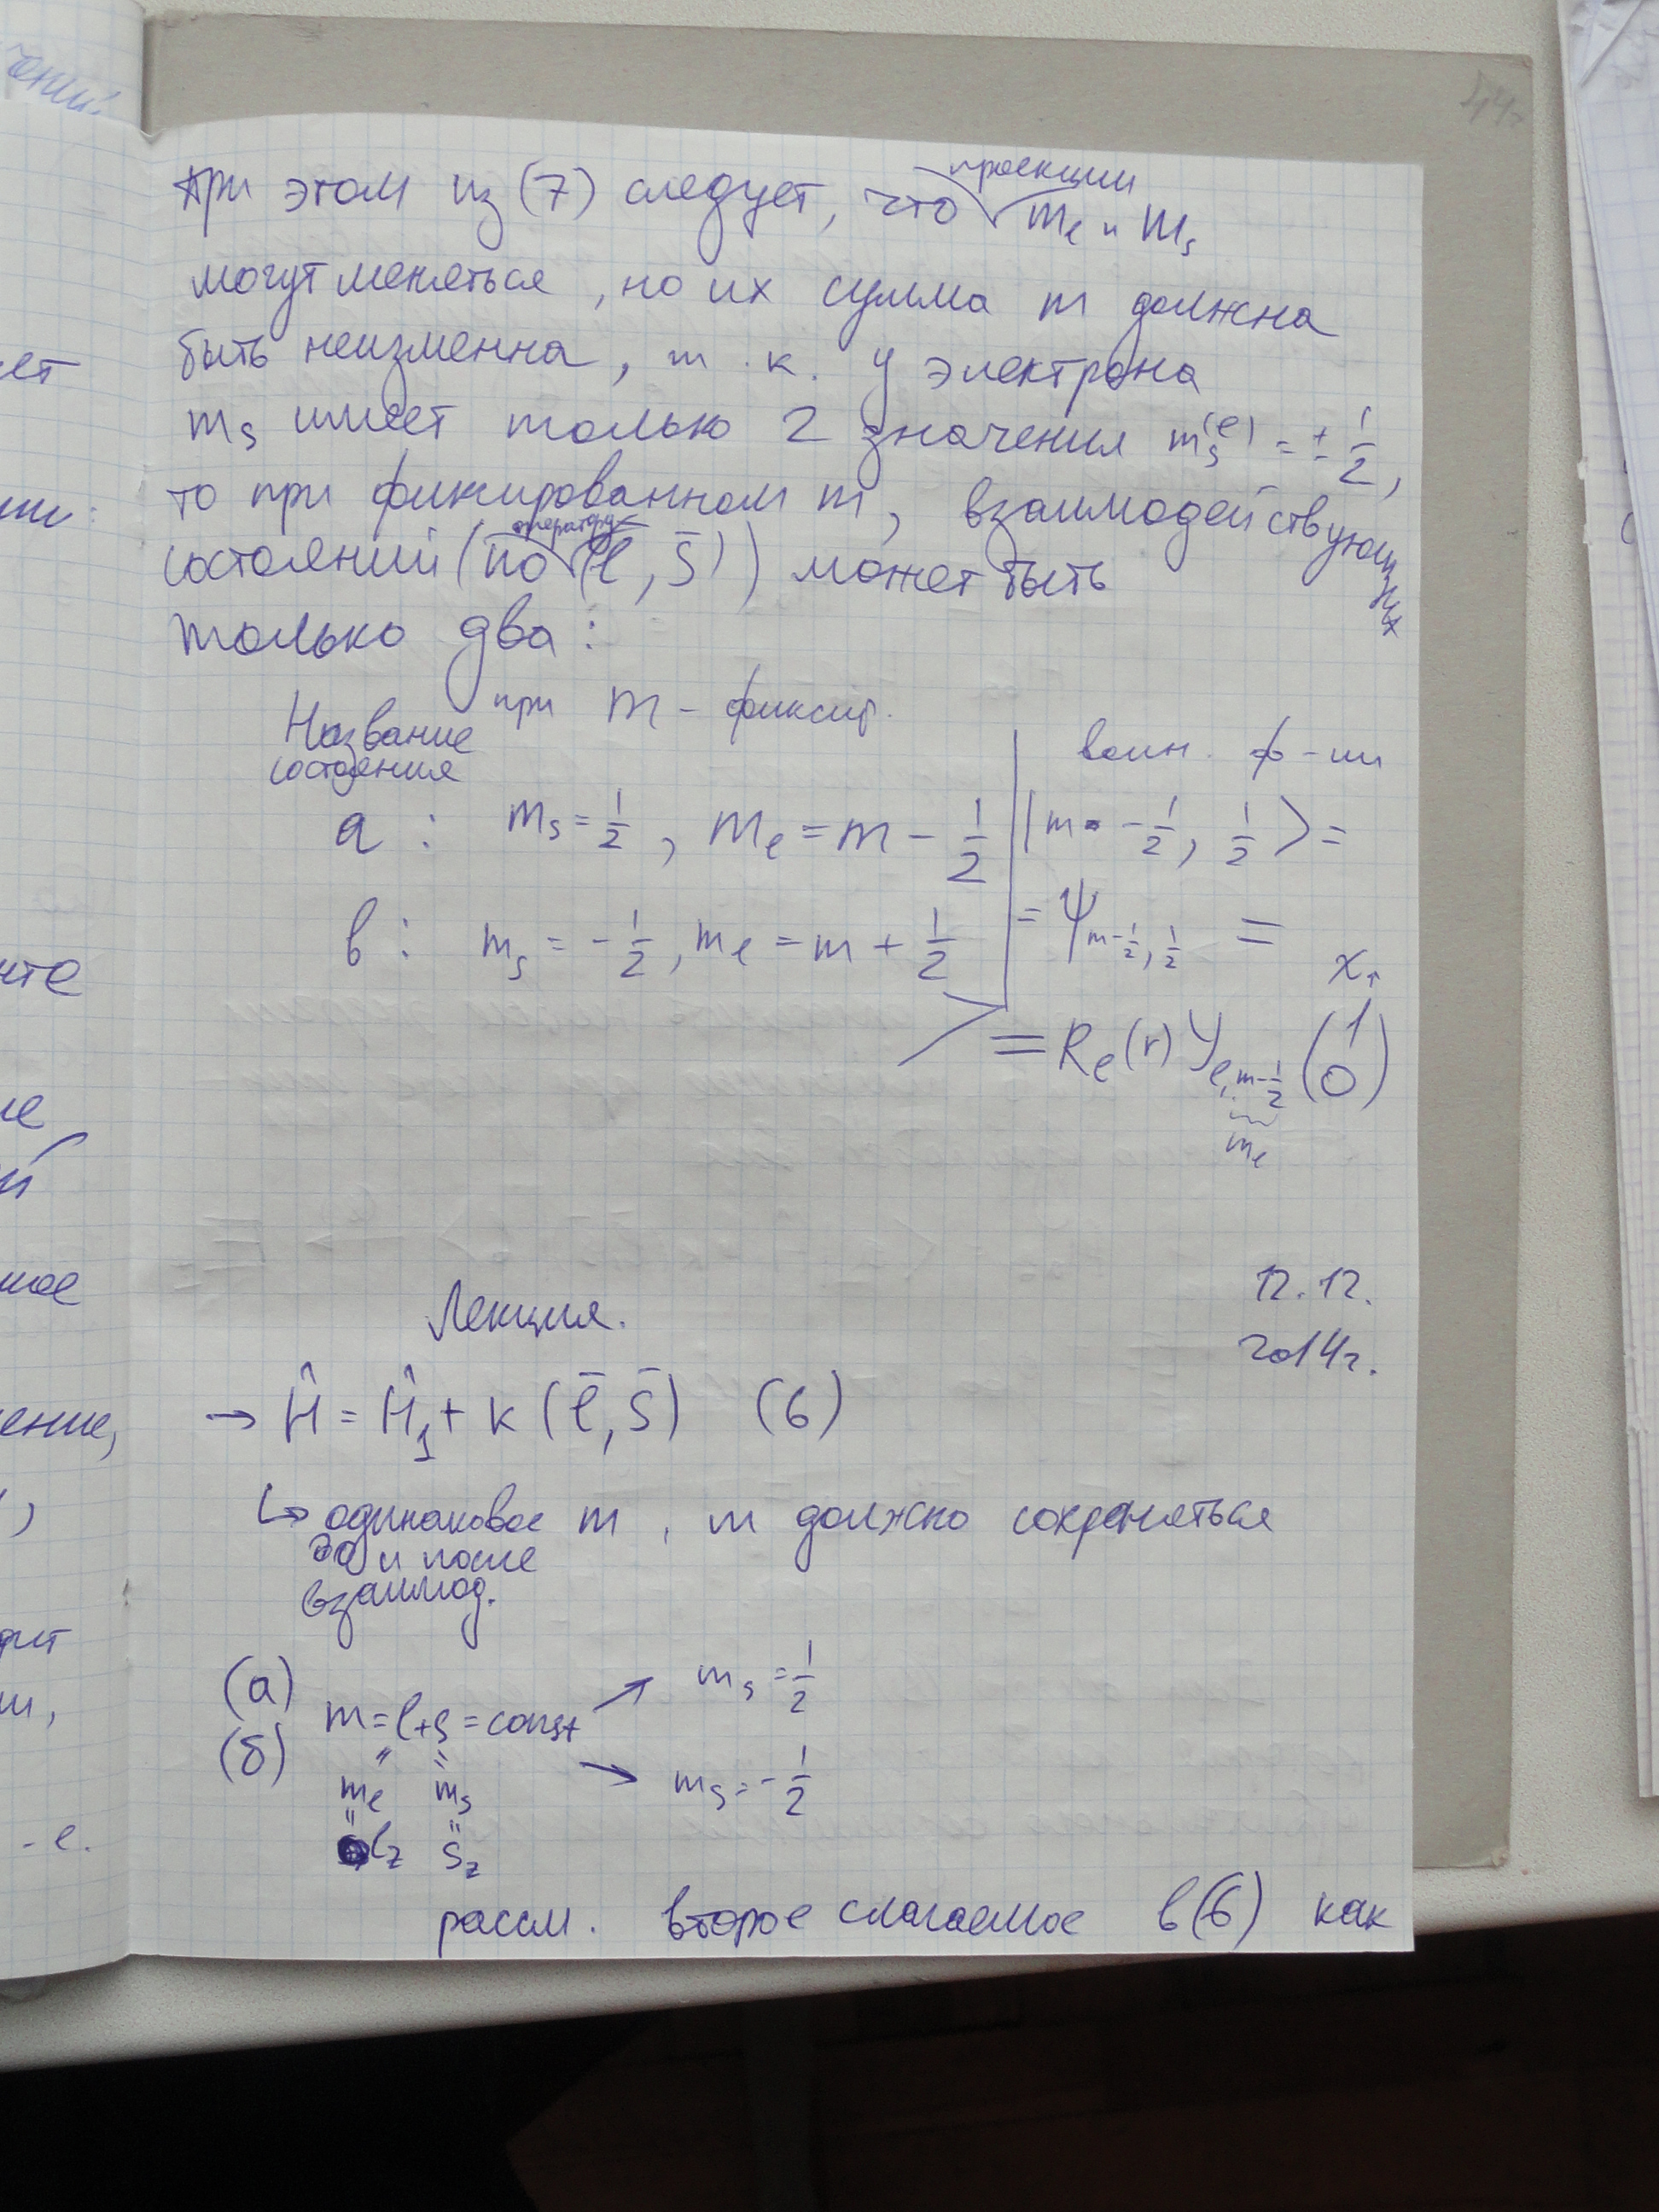 При этом из (7) следует, что проекции mₑ и mₛ
могут меняться, но их сумма m должна
быть неизменна, т.к. у электрона
mₛ имеет только 2 значения mₛ⁽ᵉ⁾ = ± 1/2,
то при фиксированном m, взаимодействующих
состояний (по оператору (l̄, s̄)) может быть
только два:
при m - фиксир.
Название состояния
волн. ф-ии
a : mₛ = 1/2, mₑ = m - 1/2 | |m - 1/2, 1/2 > =
в : mₛ = -1/2, mₑ = m + 1/2 | = ψ m-1/2, 1/2 =
χ↑
= Rₑ(r) Y ₑ, m-1/2 (1 0)
mₑ
12.12.
2014г.
Лекция.
→ Ĥ = Ĥ₁ + к (l̄, s̄) (6)
↳ одинаковое m, m должно сохраняться
до и после
взаимод.
(а) mₛ = 1/2
m = l + s = const
(б) mₛ = -1/2
mₑ mₛ
lz sz
рассм. второе слагаемое в (6) как